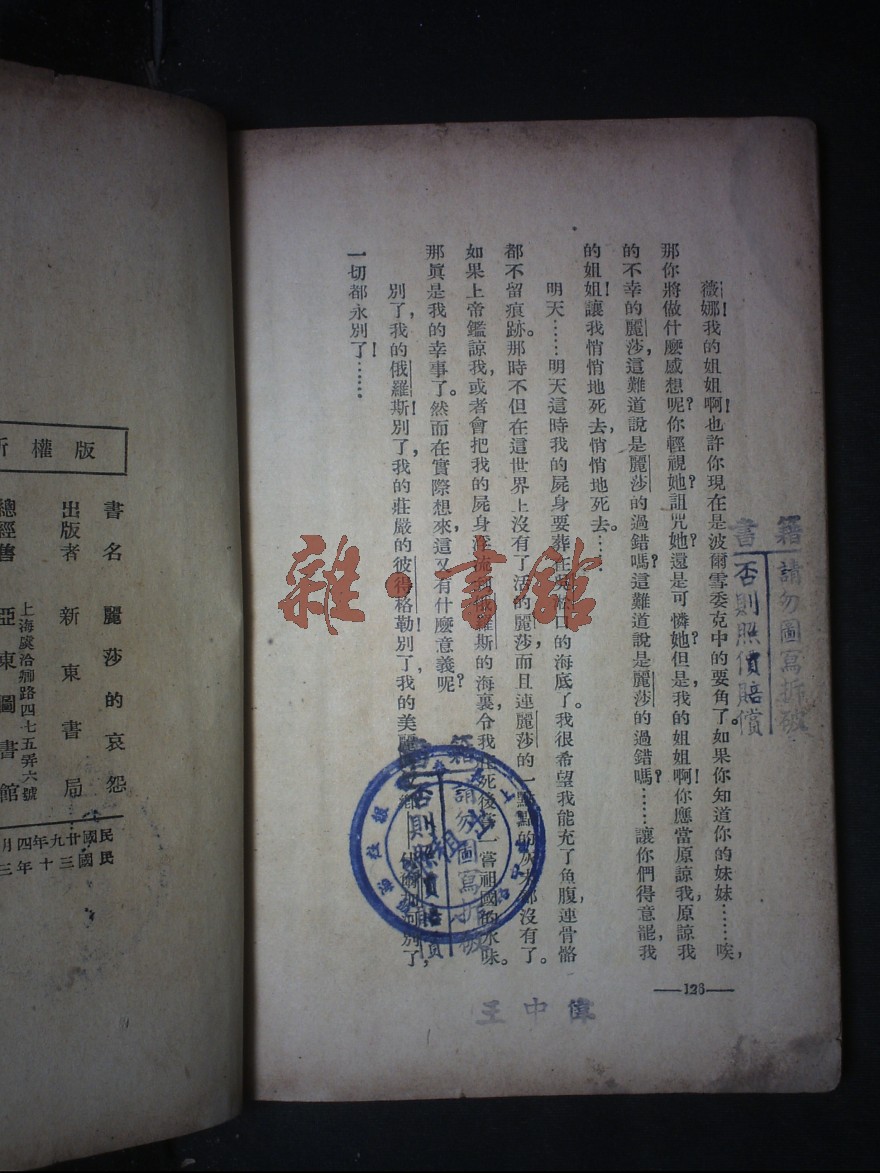 薇娜!我的姐姐啊!也許你現在是波爾雪委克中的要角了。如果你知道你的妹妹……唉,
那你將做什麽感想呢?你輕視她?詛咒她?還是可憐她?但是,我的姐姐啊!你應當原諒我,原諒我
的不幸的麗莎,這難道說是麗莎的過錯嗎?這難道說是麗莎的過錯嗎?……讓你們得意罷,我
的姐姐!讓我悄悄地死去,悄悄地死去……
明天……明天這時我的屍身要葬在吳淞口的海底了。我很希望我能充了魚腹,連骨骼
都不留痕跡。那時不但在這世界上沒有了活的麗莎,而且連麗莎的一點點的灰末都沒有了。
如果上帝鑑諒我,或者會把我的屍身浮流到俄羅斯的海裏,令我死後嘗一嘗祖國的水味。
那眞是我的幸事了。然而在實際想來,這又有什麽意義呢?
別了,我的俄羅斯!別了,我的莊嚴的彼得格勒!別了,我的美麗的
別了,
一切都永別了!……
—126—
書籍
請勿圖寫折破
否則照價賠償
書籍
請勿圖寫折破
否則照價賠償
王中偉
雜·書館
版權所
書名 麗莎的哀怨
出版者 新東書局
上海虞洽卿路四七五弄六號
總經售 亞東圖書館
民國廿九年四月
民國三十年三